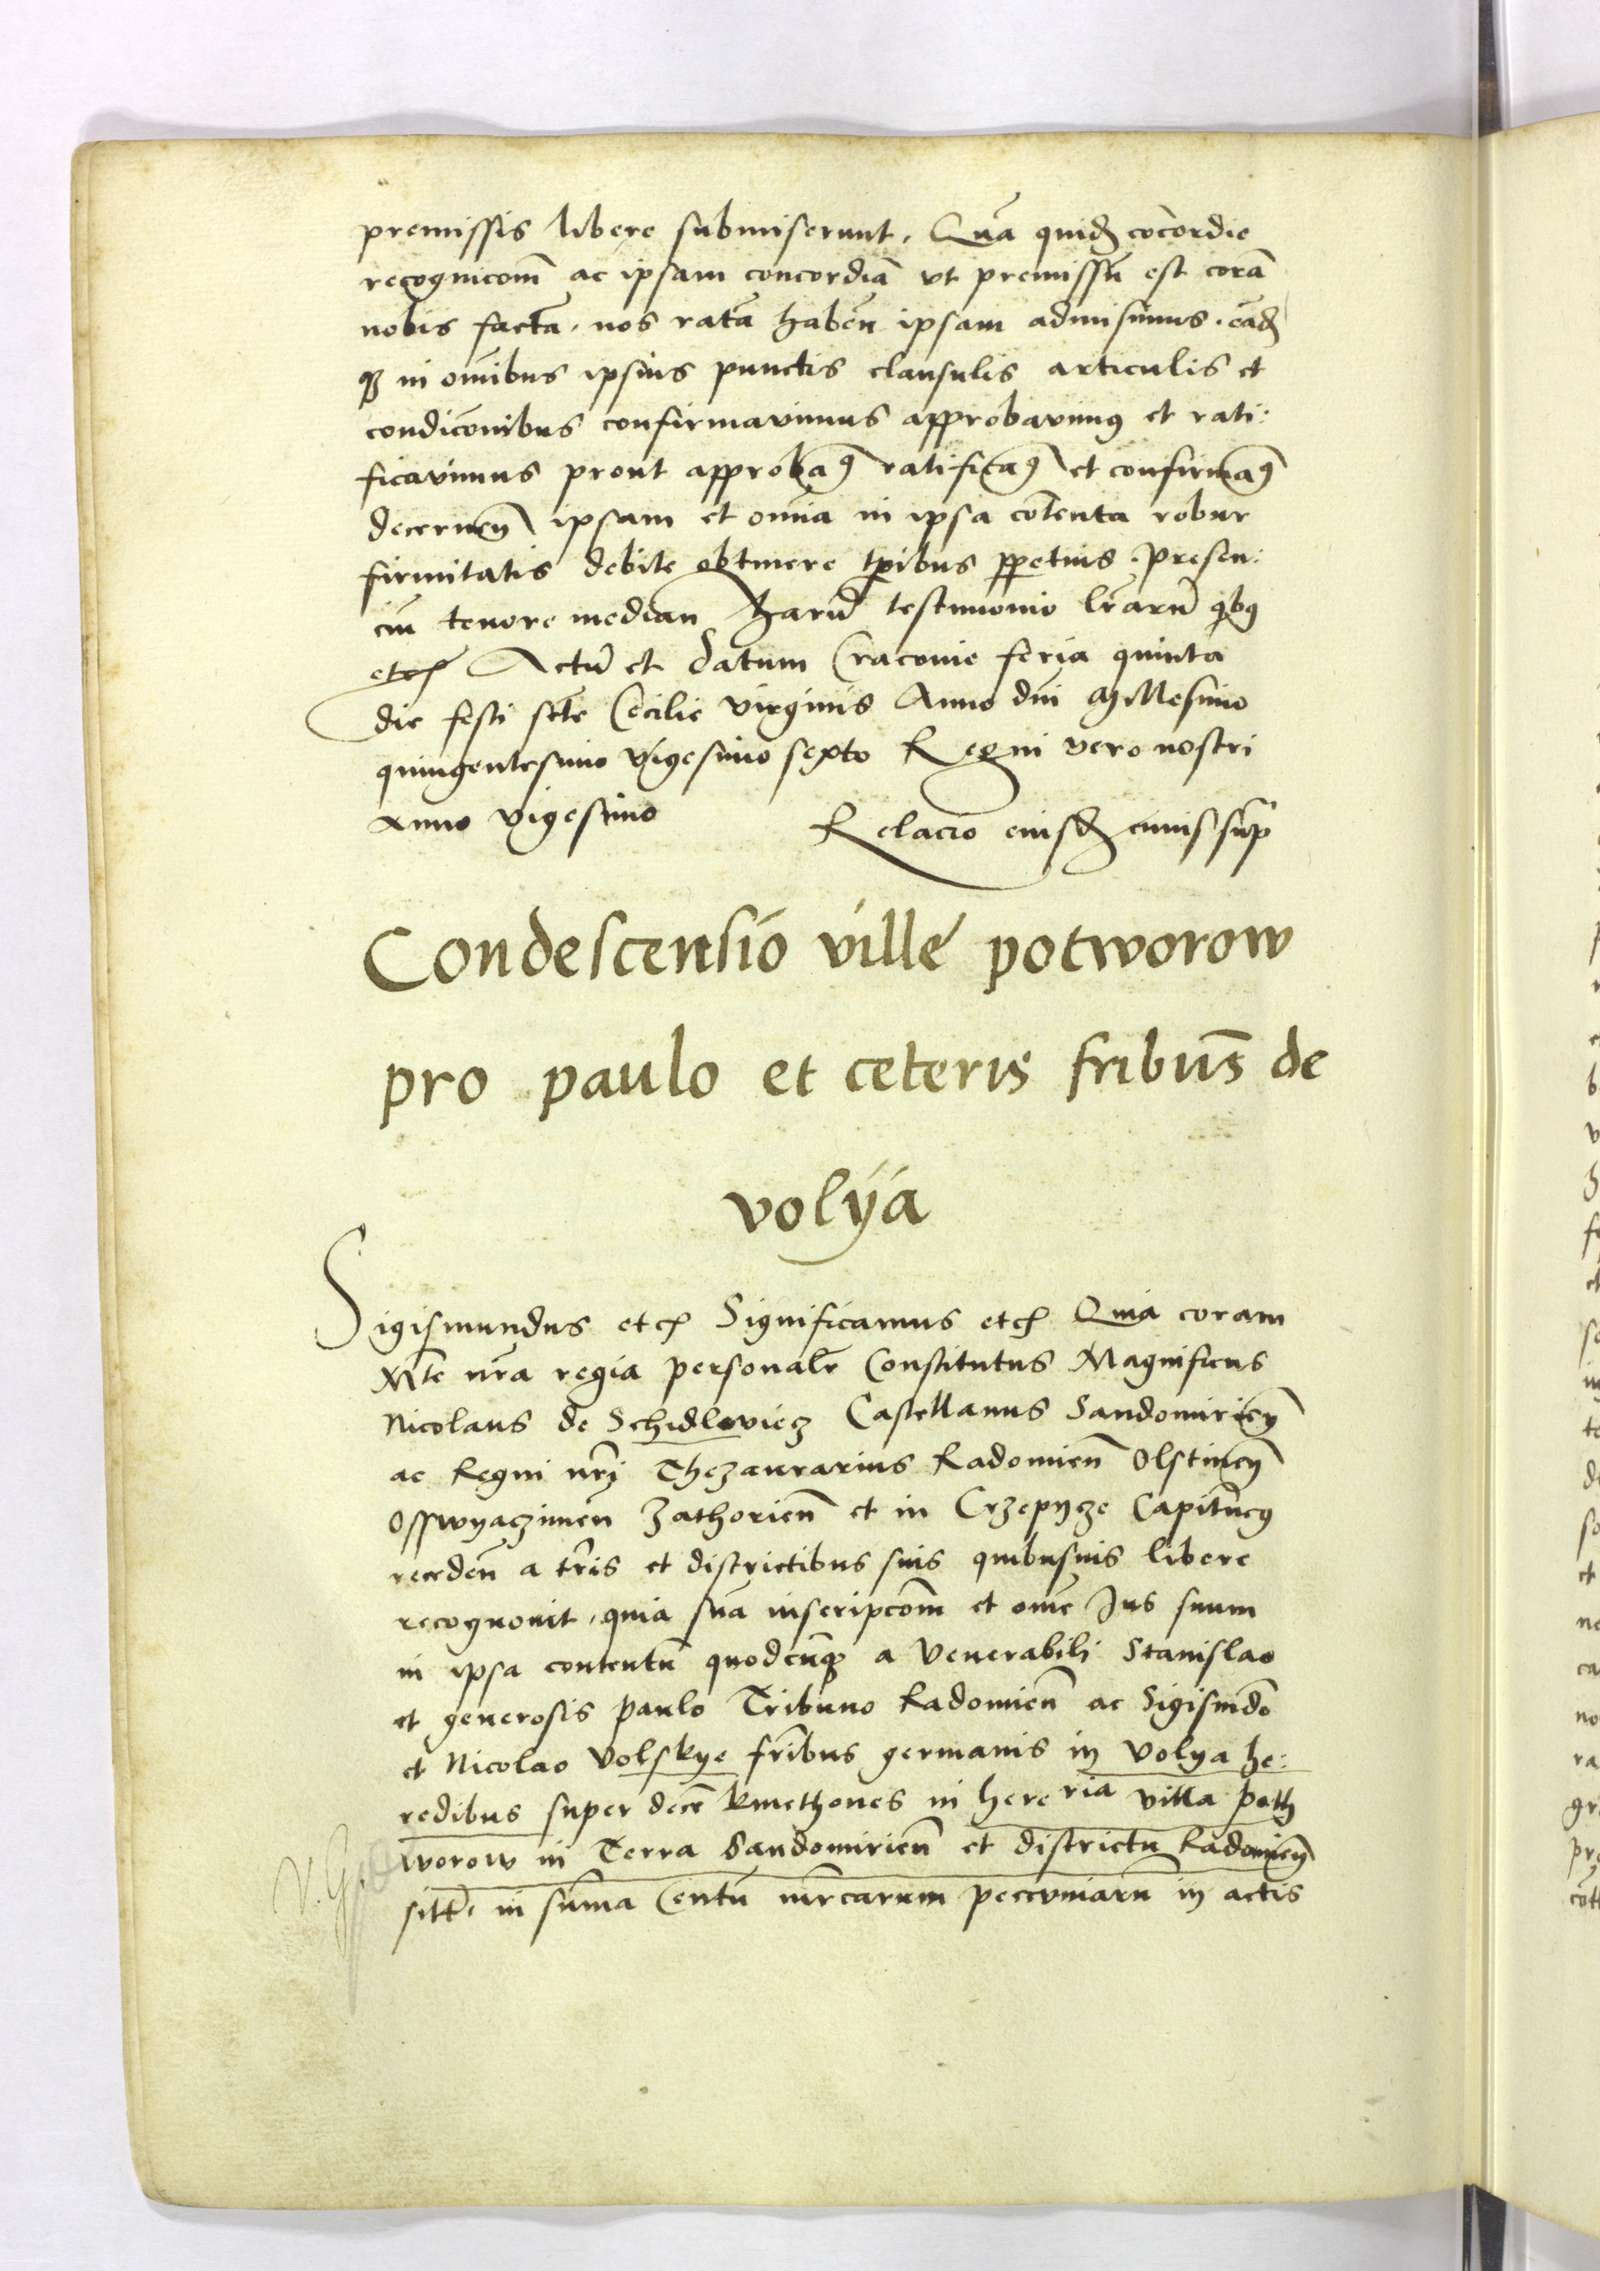 premissis libere submiserunt. Quã quidẽ cõcordie
recognicoñ ac ipsam concordiã ut premissũ est corã
nobis factã. nos ratã habeñ ipsam admisimus. eãdẽ
q3 in oñibus ipsius punctis clausulis articulis et
condicõnibus confirmavimus approbavimꝰ et rati:
ficavimus prout approbãꝰ ratificãꝰ et confirmãꝰ
decerneñ ipsam et oñia in ipsa cõtenta robur
firmitatis debite obtinere tp̃ibus ꝑpetuis. presen:
ciũ tenore median̄ Harũ testimonio lr̃arũ q̃bꝰ
etcz Actũ et datum Cracovie feria quinta
die festi scte Cecilie virginis Anno dñi Millesimo
quingentesimo vigesimo sexto Regni vero nostri
Anno vigesimo Relacio eiusdẽ cuius sup̃
Condescensio ville potworow
pro paulo et ceteris fribus̃ de
volÿa
Sigismundus etcz Significamus etcz Quia coram
Mte nr̃a regia personalr̃ Constitutus Magnificus
Nicolaus de Schidloviecz Castellanus Sandomirieñ
ac Regni nr̃i Thezaurarius Radomieñ Olstineñ
Osswyaczimeñ Zathorieñ et in Crzepycze Capitñeꝰ
recedeñ a tr̃is et districtibus suis quibusvis libere
recognovit. quia suã inscripcõm et om̃e Jus suum
in ipsa contentũ quodcũq3 a Venerabili Stanislao
et generosis paulo Tribuno Radomieñ ac Sigismdõ
et Nicolao Volskye fr̃ibus germanis in Volya he:
redibus super decẽ kmethones in here ria villa poth
worow in Terra Sandomirieñ et districtu Radomieñ
sitt̃. in sũma Centũ mr̃carum peccuniarũ in actis